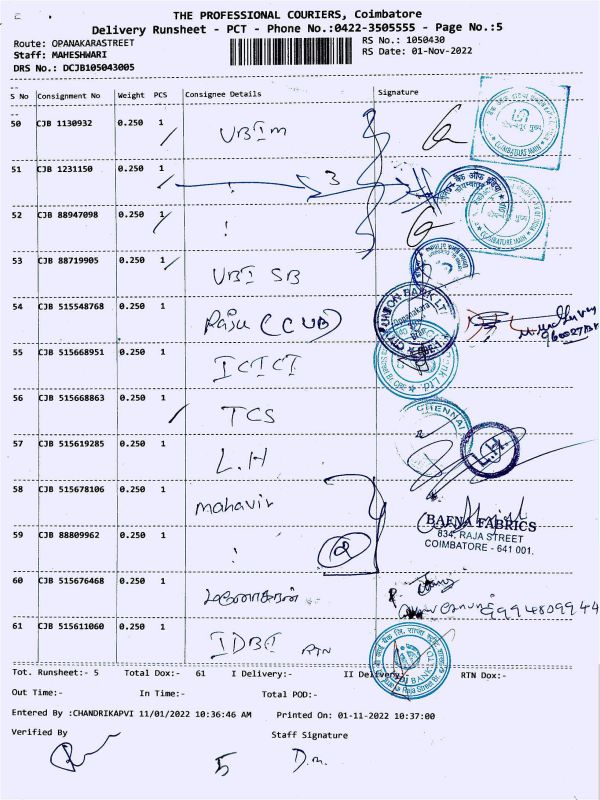 THE PROFESSIONAL COURIERS, Coimbatore
Delivery Runsheet - PCT - Phone No.:0422-3505555 - Page No.:5
Route: OPANAKARASTREET
RS No.: 1050430
Staff: MAHESHWARI
RS Date: 01-Nov-2022
DRS No.: DCJB105043005
S No Consignment No Weight PCS Consignee Details Signature
50 CJB 1130932 0.250 1 UBI M
COIMBATORE MAIN
51 CJB 1231150 0.250 1 " 3
52 CJB 88947098 0.250 1 "
COIMBATORE MAIN
53 CJB 88719905 0.250 1 UBI SB
54 CJB 515548768 0.250 1 Raju (CUB)
CITY UNION BANK LTD
55 CJB 515668951 0.250 1 ICICI
Bank Ltd.
56 CJB 515668863 0.250 1 TCS
CHENNAI
57 CJB 515619285 0.250 1 L.H
L.H.
58 CJB 515678106 0.250 1 Mahavir
BAFNA FABRICS
834, RAJA STREET
COIMBATORE - 641 001.
59 CJB 88809962 0.250 1 " 2
60 CJB 515676468 0.250 1 மனோகரன்
9994809944
61 CJB 515611060 0.250 1 IDBI RTN
IDBI BANK LTD
Raja Street Br.
Tot. Runsheet:- 5 Total Dox:- 61 I Delivery:- II Delivery:- RTN Dox:-
Out Time:- In Time:- Total POD:-
Entered By :CHANDRIKAPVI 11/01/2022 10:36:46 AM Printed On: 01-11-2022 10:37:00
Verified By Staff Signature
5 D.M.